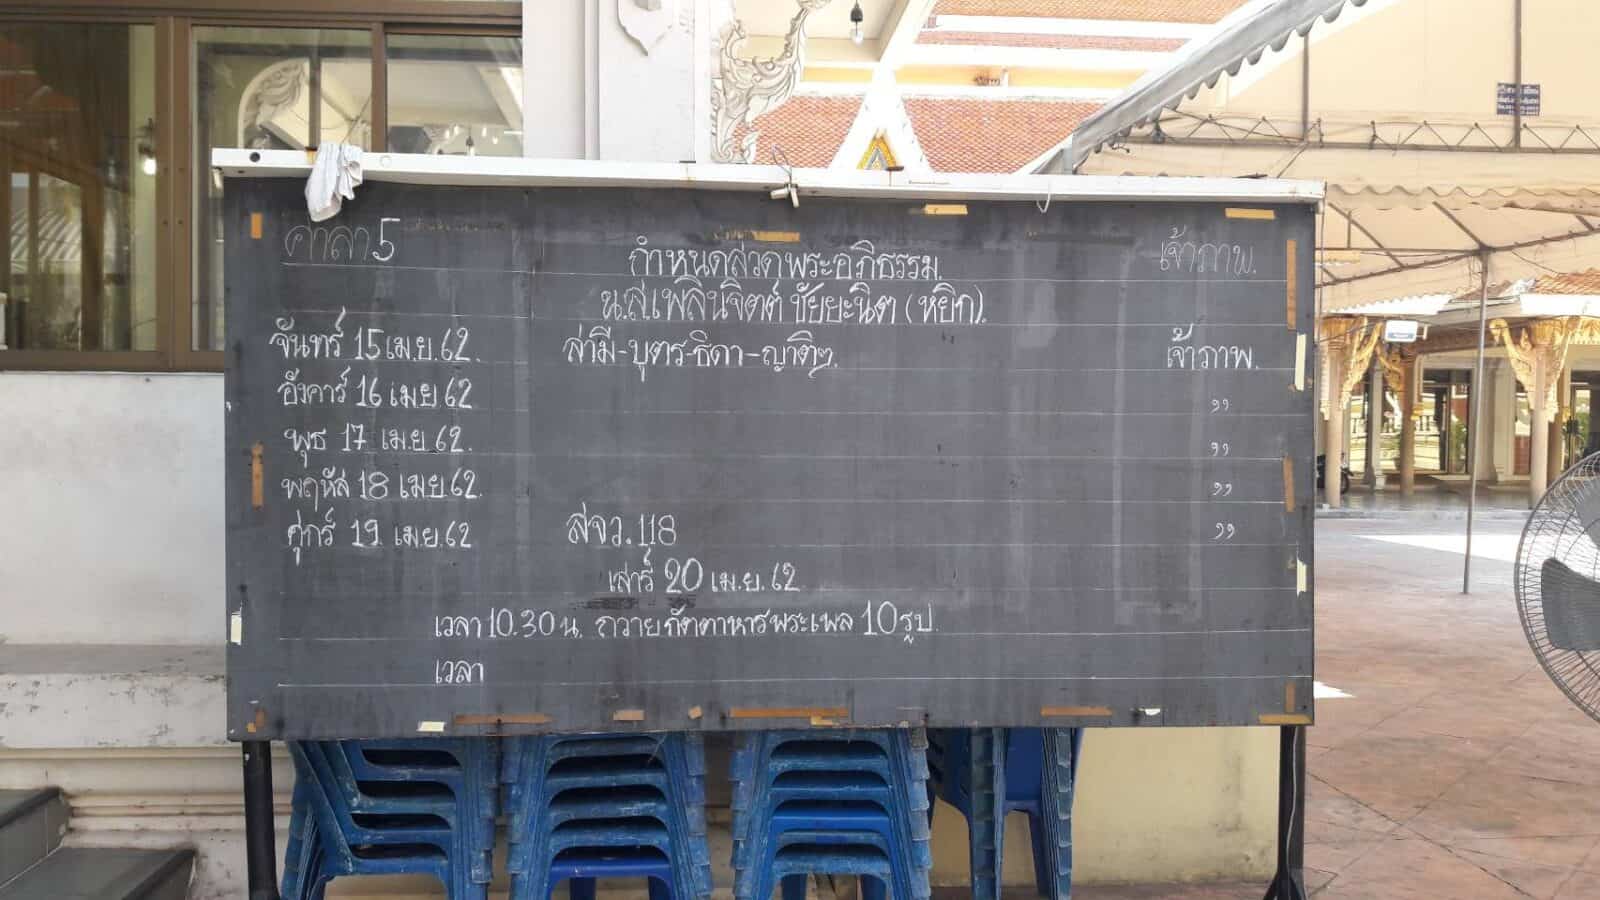 ศาลา 5
กำหนดสวดพระอภิธรรม.
เจ้าภาพ.
น.ส.เพลินจิตต์ ชัยยะนิต (หยิก).
จันทร์ 15 เม.ย. 62. สามี-บุตร-ธิดา-ญาติๆ. เจ้าภาพ.
อังคาร์ 16 เม.ย 62 ,,
พุธ 17 เม.ย 62. ,,
พฤหัส 18 เมย 62. ,,
ศุกร์ 19. เม.ย. 62 สจว. 118 ,,
เสาร์ 20 เม.ย. 62
เวลา 10.30 น. ถวายภัตตาหารพระเพล 10 รูป.
เวลา